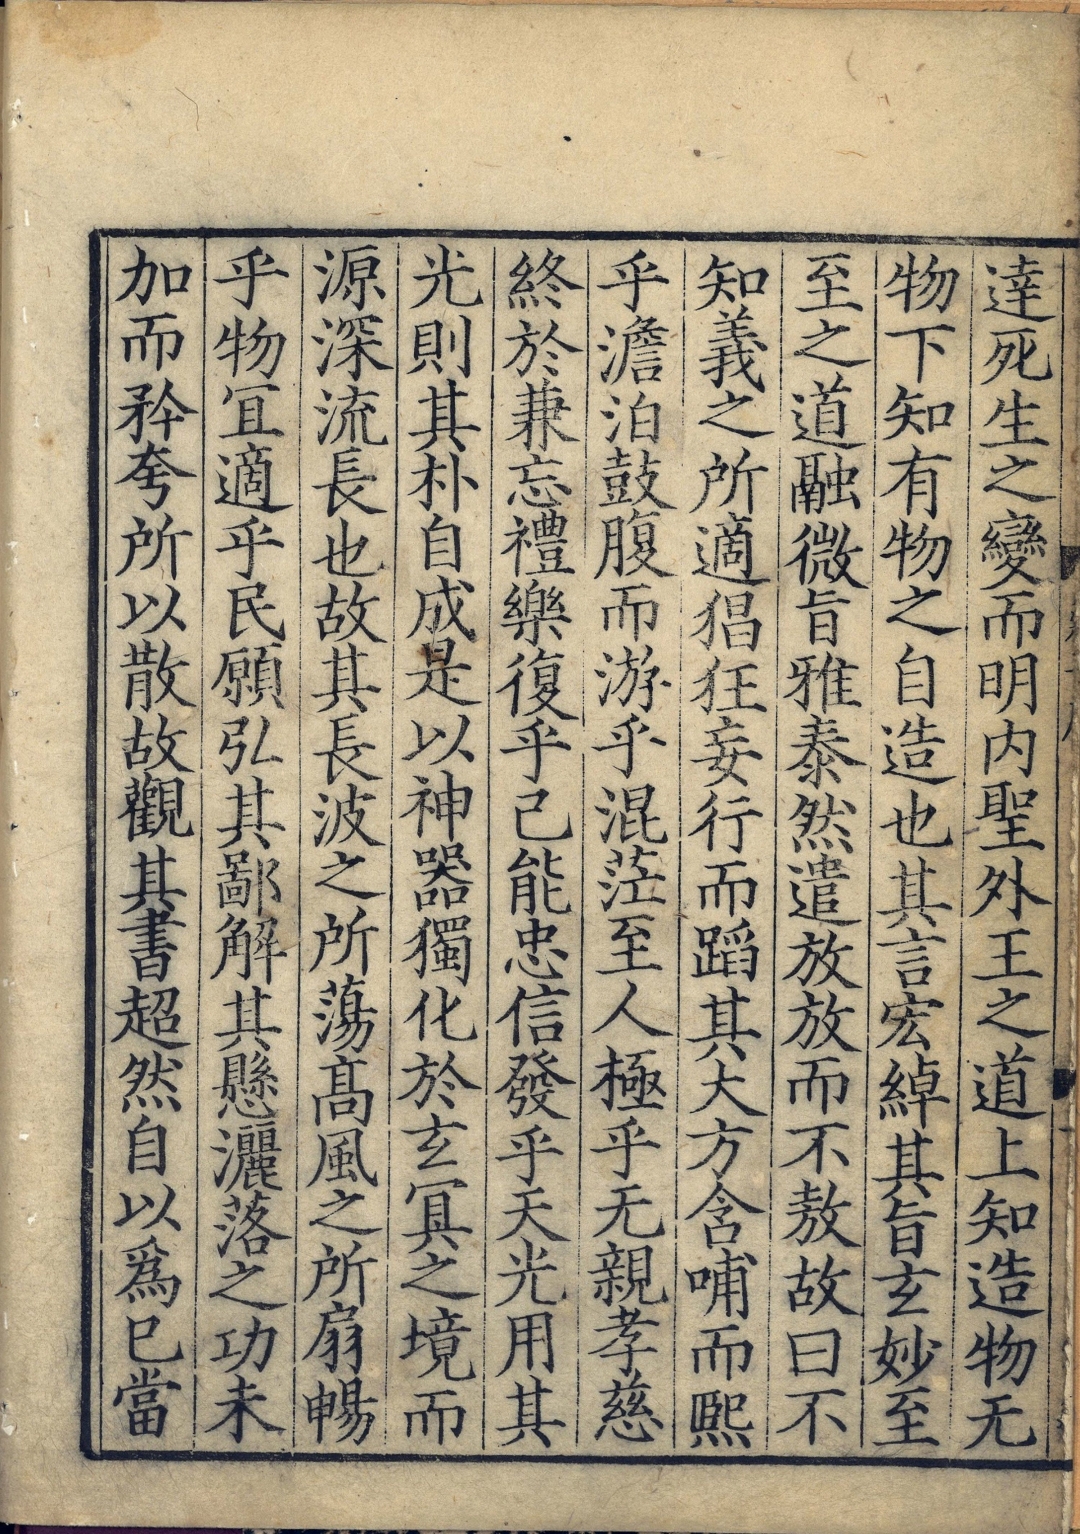 達死生之變而明内聖外王之道上知造物无
物下知有物之自造也其言宏綽其旨玄妙至
至之道融微旨雅泰然遣放放而不敖故曰不
知義之所適猖狂妄行而蹈其大方含哺而熙
乎澹泊鼓腹而游乎混茫至人極乎无親孝慈
終於兼忘禮樂復乎己能忠信發乎天光用其
光則其朴自成是以神器獨化於玄冥之境而
源深流長也故其長波之所蕩髙風之所扇暢
乎物冝適乎民願弘其鄙解其懸灑落之功未
加而矜夸所以散故觀其書超然自以爲已當